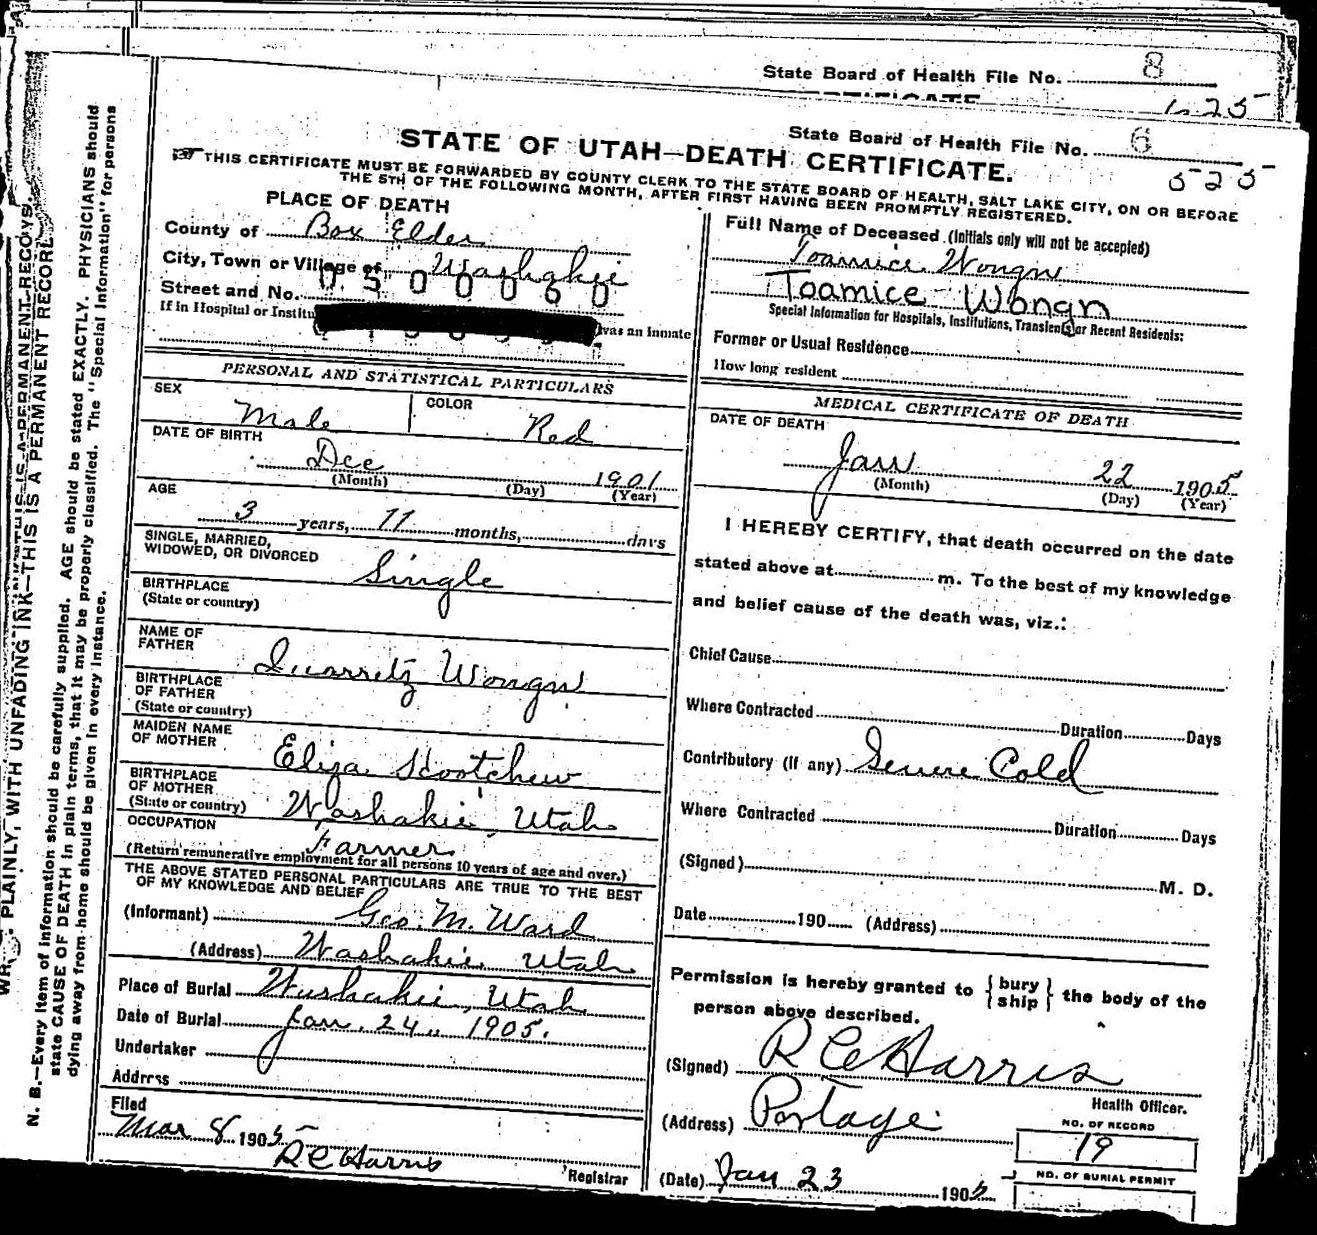 State Board of Health File No. 8
625
State Board of Health File No. 6
525
STATE OF UTAH—DEATH CERTIFICATE.
THIS CERTIFICATE MUST BE FORWARDED BY COUNTY CLERK TO THE STATE BOARD OF HEALTH, SALT LAKE CITY, ON OR BEFORE
THE 5TH OF THE FOLLOWING MONTH, AFTER FIRST HAVING BEEN PROMPTLY REGISTERED.
PLACE OF DEATH
County of Box Elder
City, Town or Village of Washakie
0500060
Street and No.
If in Hospital or Institu
was an inmate
PERSONAL AND STATISTICAL PARTICULARS
SEX Male
COLOR Red
DATE OF BIRTH
Dec 1901
(Month) (Day) (Year)
AGE
3 years, 11 months, days
SINGLE, MARRIED,
WIDOWED, OR DIVORCED Single
BIRTHPLACE
(State or country)
NAME OF
FATHER Quarritz Wongn
BIRTHPLACE
OF FATHER
(State or country)
MAIDEN NAME
OF MOTHER Eliza Scootchew
BIRTHPLACE
OF MOTHER
(State or country) Washakie, Utah
OCCUPATION Farmer
(Return remunerative employment for all persons 10 years of age and over.)
THE ABOVE STATED PERSONAL PARTICULARS ARE TRUE TO THE BEST
OF MY KNOWLEDGE AND BELIEF
(Informant) Geo. M. Ward
(Address) Washakie Utah
Place of Burial Washakie, Utah
Date of Burial Jan. 24, 1905.
Undertaker
Address
Filed
Mar 8 1905
R C Harris
Registrar
Full Name of Deceased (Initials only will not be accepted)
Toamice Wongn
Toamice Wongn
Special Information for Hospitals, Institutions, Transien(s) or Recent Residents:
Former or Usual Residence
How long resident
MEDICAL CERTIFICATE OF DEATH
DATE OF DEATH
Jan 22 1905
(Month) (Day) (Year)
I HEREBY CERTIFY, that death occurred on the date
stated above at m. To the best of my knowledge
and belief cause of the death was, viz.:
Chief Cause
Where Contracted Duration Days
Contributory (If any) Severe Cold
Where Contracted Duration Days
(Signed) M. D.
Date 190 (Address)
Permission is hereby granted to { bury ship } the body of the
person above described.
(Signed) R C Harris
Health Officer.
(Address) Portage
NO. OF RECORD
19
NO. OF BURIAL PERMIT
(Date) Jan 23 1905
PLAINLY, WITH UNFADING INK—THIS IS A PERMANENT RECORD
N. B.—Every item of information should be carefully supplied. AGE should be stated EXACTLY. PHYSICIANS should
state CAUSE OF DEATH in plain terms, that it may be properly classified. The "Special Information" for persons
dying away from home should be given in every instance.